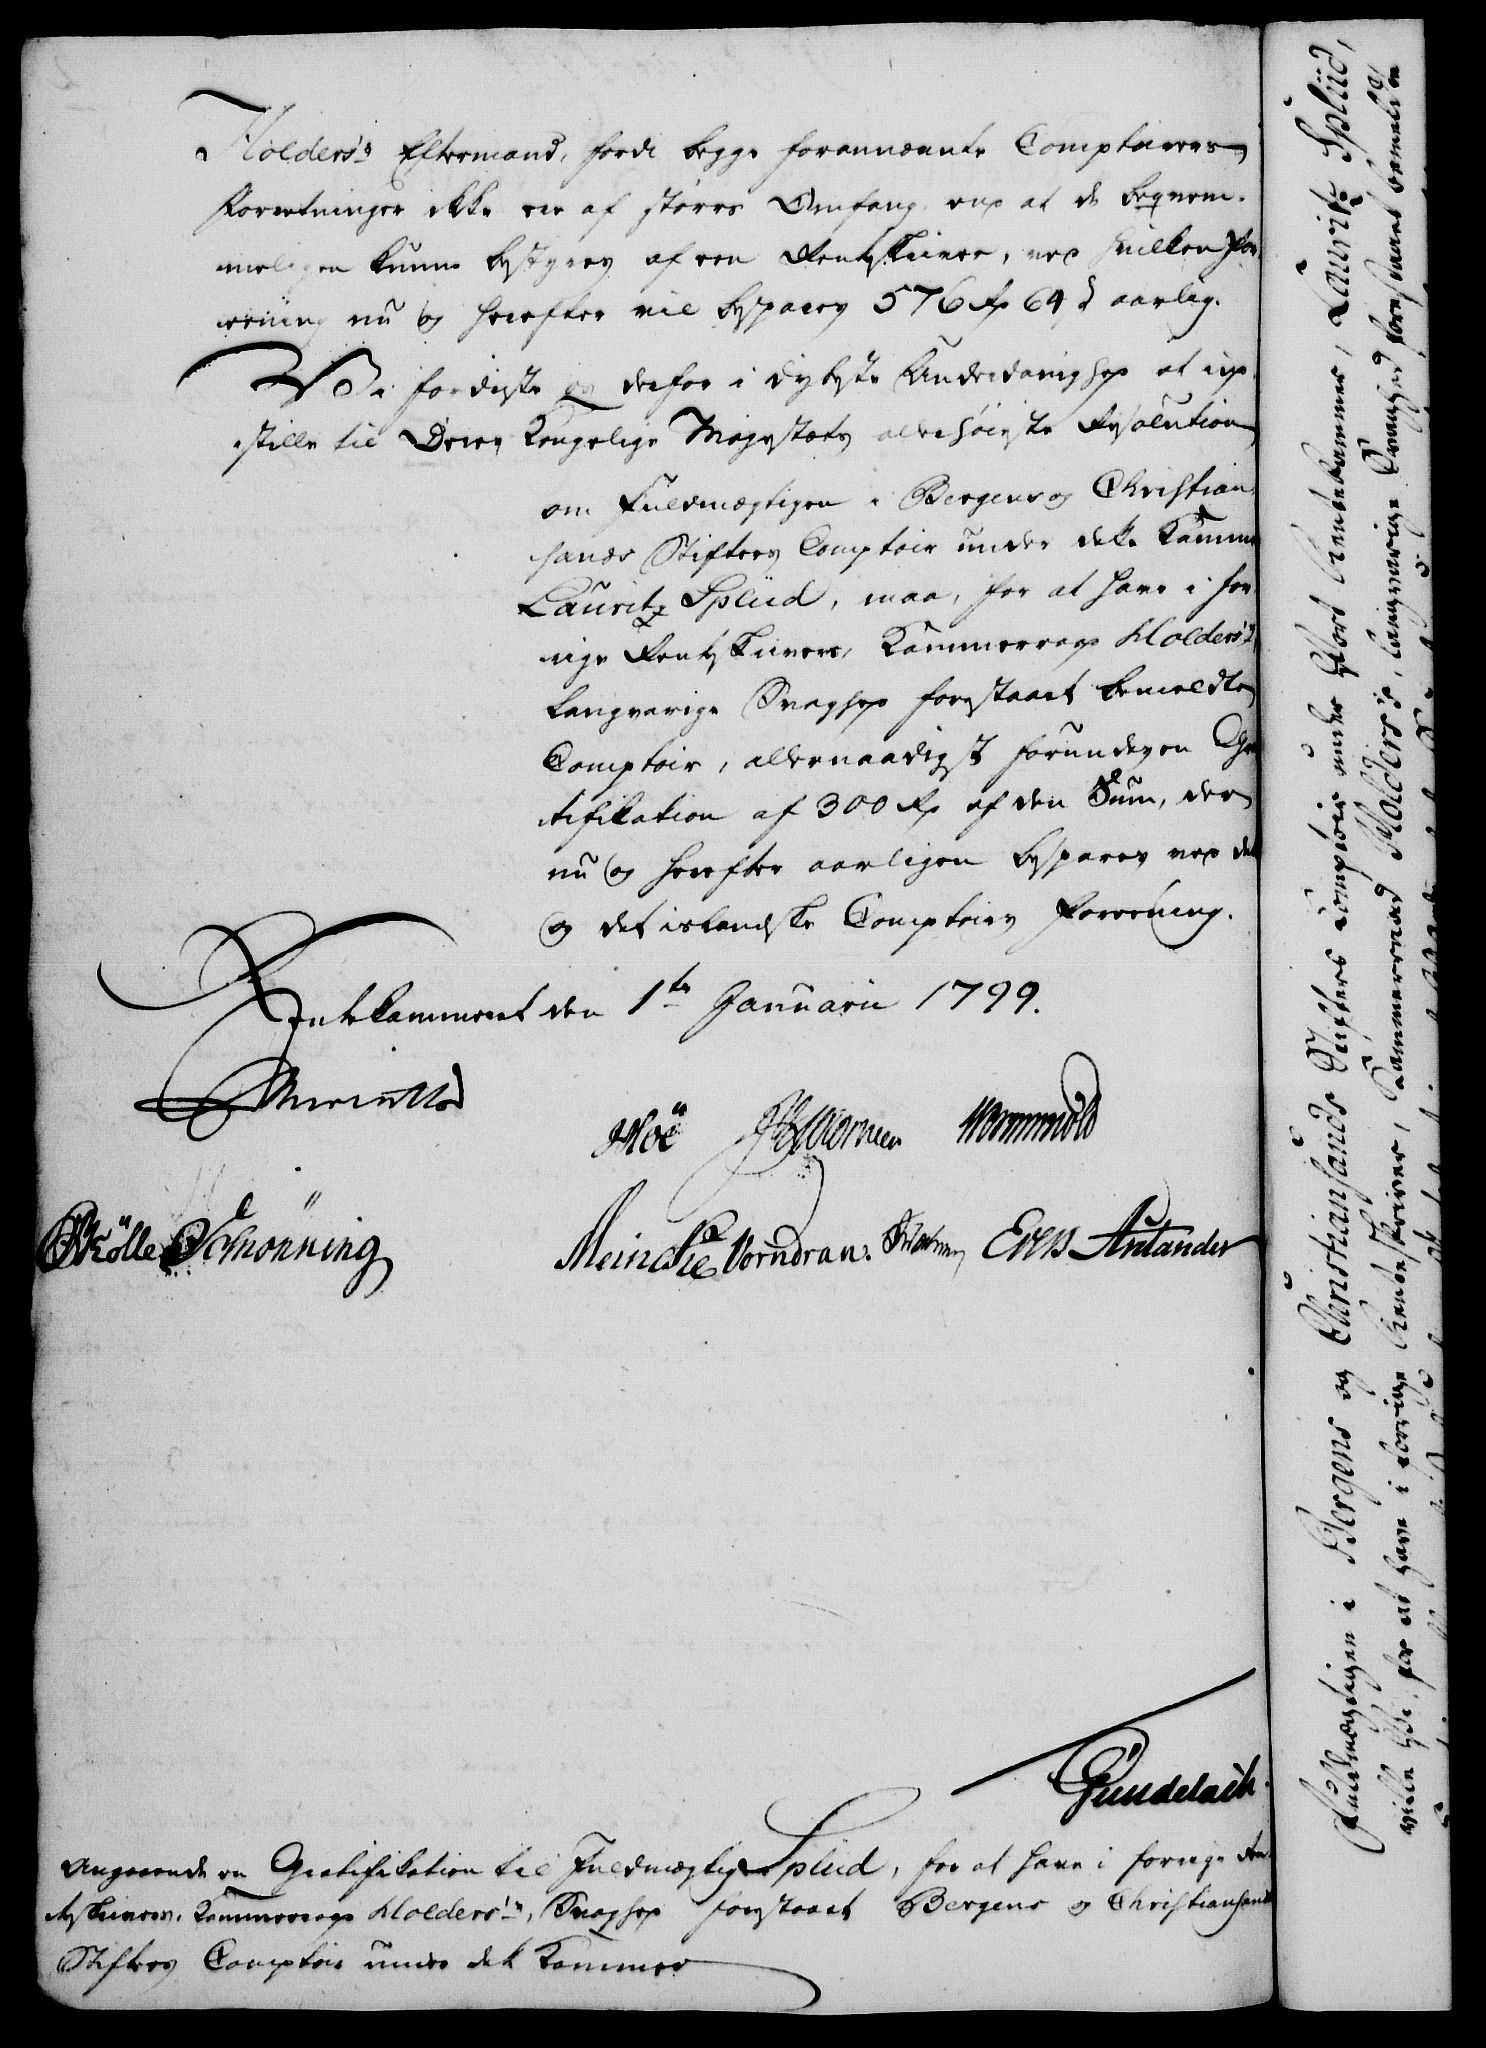 Holders's Eftermand, fordi begge forannævnte Comptoirers
Forretninger ikke ere af større Omfang, end at de beqvem-
meligen kunne bestyres af een Rentskriver, ved hvilken For-
eening nu og herefter vil bespares 576 Rd 64 s aarlig.
Vi fordriste os derfor i dybeste Underdanighed at ind-
stille til Deres Kongelige Majestæts allerhøieste Resolution
om Fuldmægtigen i Bergens og Christian-
sands Stifters Comptoir under dette Kammer
Lauritz Splüd, maa, for at have i for-
rige Rentskrivers, Kammerraad Holders's
langvarige Svaghed forestaaet bemeldte
Comptoir, allernaadigst forundes en Gra-
tifikation af 300 Rd af den Sum, der
nu og herefter aarligen bespares ved det
og det islandske Comptoirs Foreening.
Rentekammeret den 1te Januarii 1799.
Wormskiold
Schönning
Meincke Vorndran Evers Antander
Gundelach.
Angaaende en Gratifikation til Fuldmægtig Splüd, for at have i forrige Ren-
teskrivers, Kammerraad Holders's, Svaghed forestaaet Bergens og Christiansands
Stifters Comptoir under dette Kammer
Fuldmægtigen i Bergens og Christiansands Stifters Comptoir under Vort Rentekammer, Lauritz Splüd,
ville Vi, for at have i forrige Renteskriver, Kammerraad Holders's, langvarige Svaghed forestaaet bemeldte